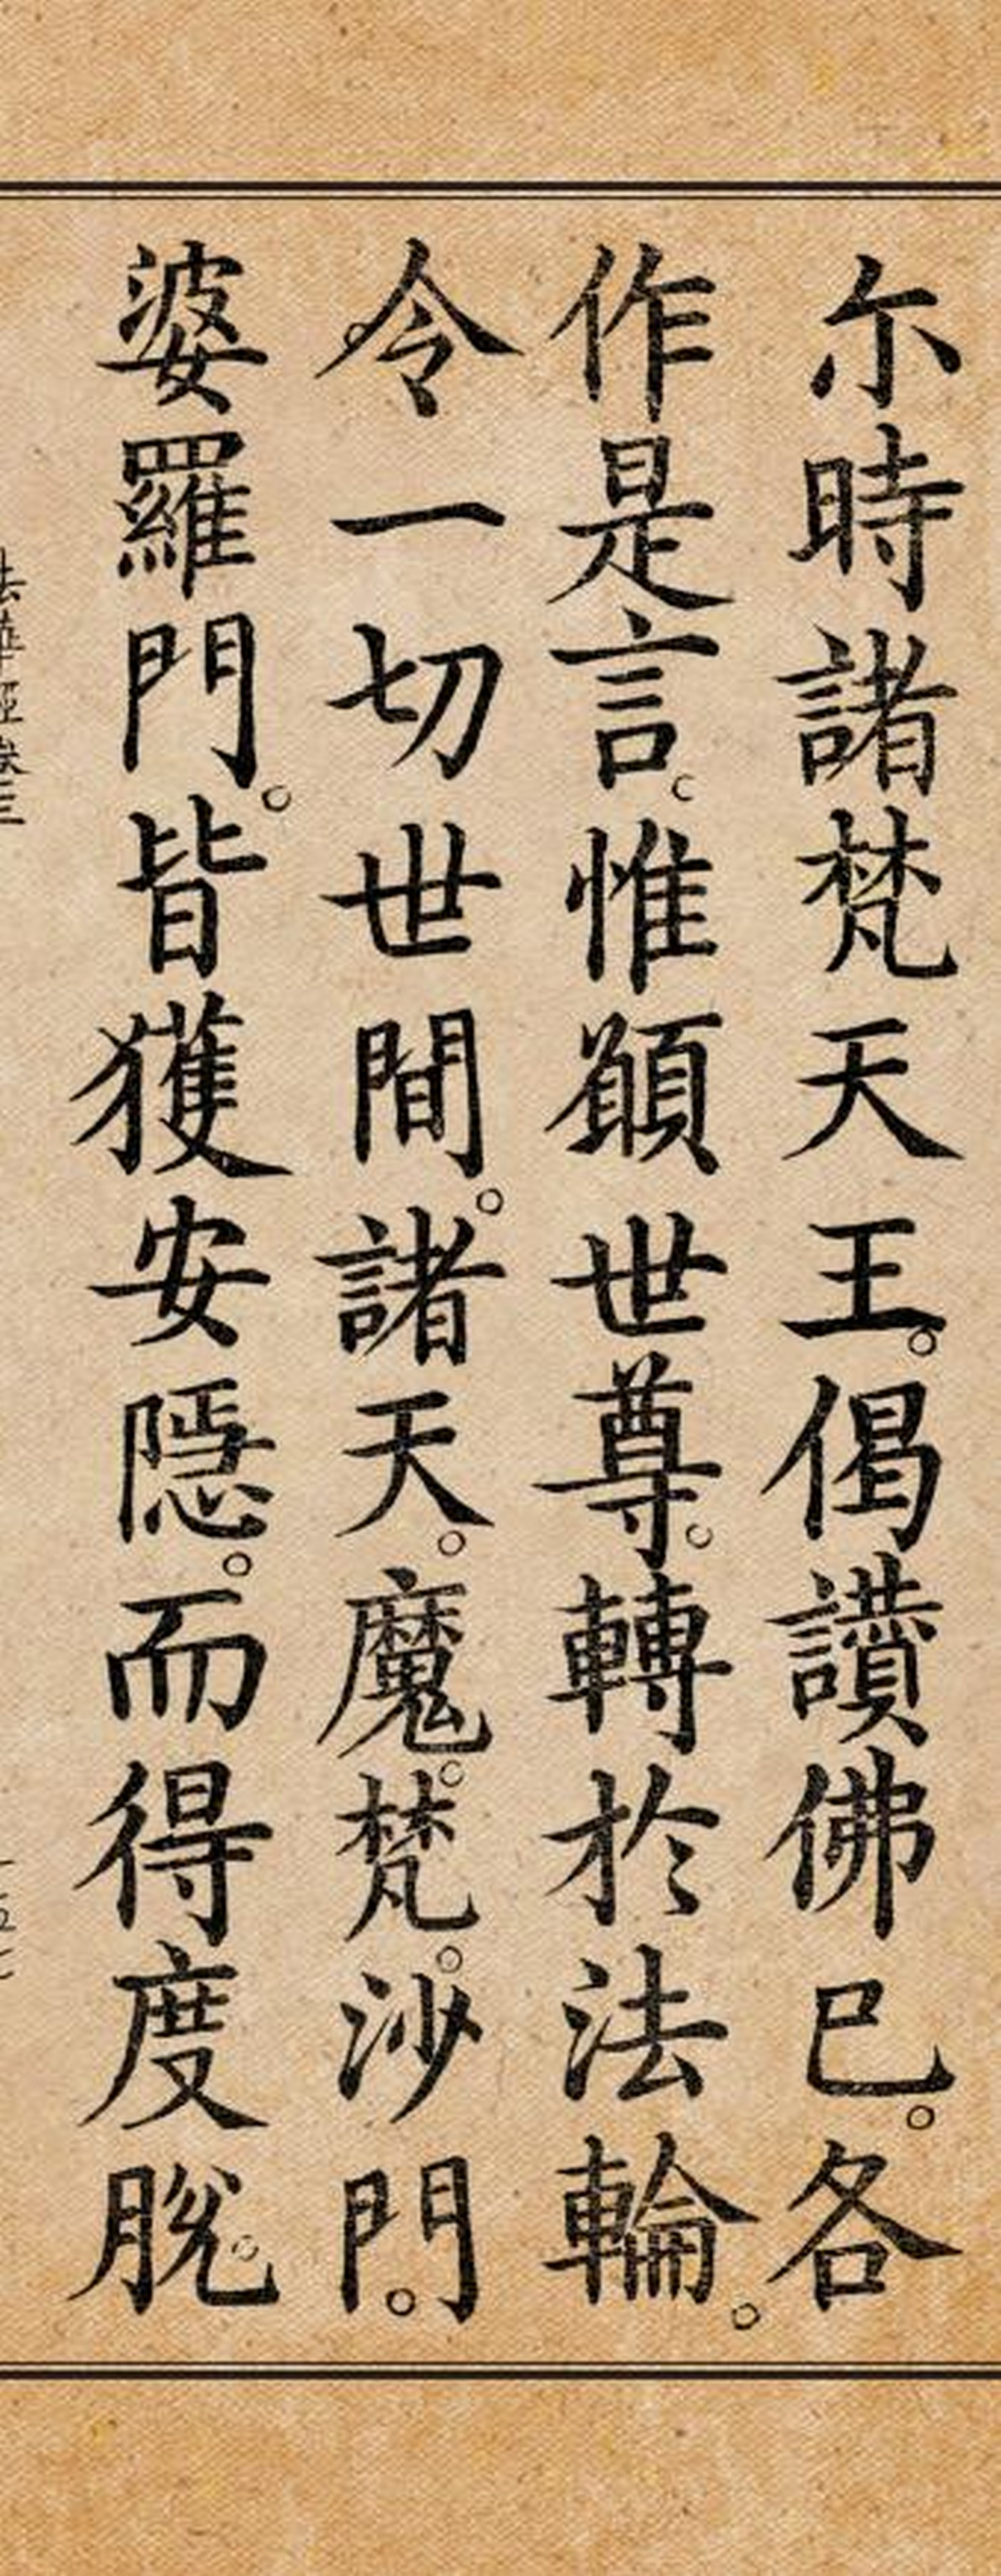 尒時諸梵天王。偈讚佛已。各
作是言。惟願世尊。轉於法輪。
令一切世間。諸天。魔。梵。沙門。
婆羅門。皆獲安隱。而得度脫。
法華經卷三